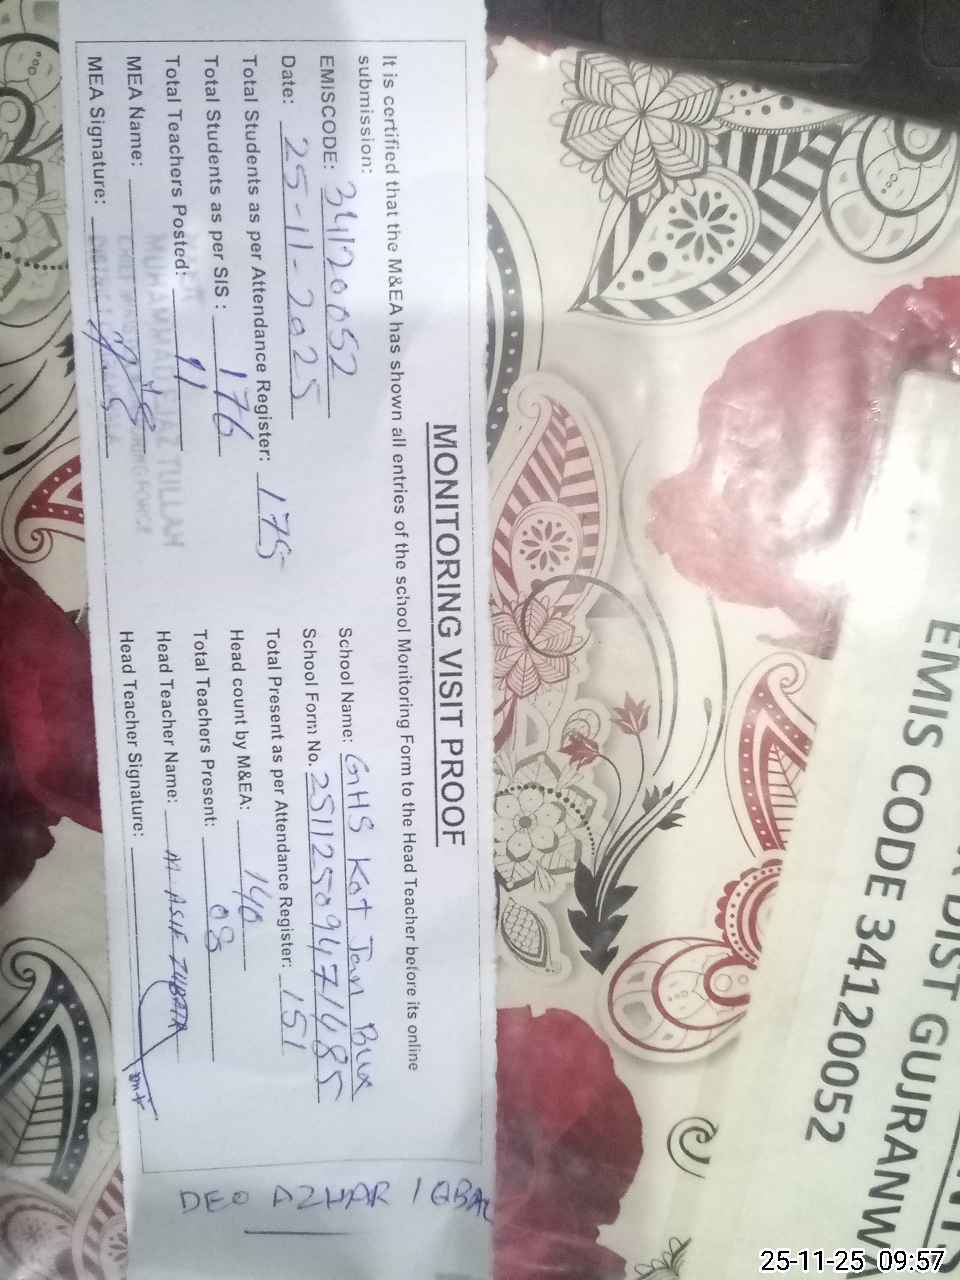 MONITORING VISIT PROOF
It is certified that the M&EA has shown all entries of the school Monitoring Form to the Head Teacher before its online
submission:
EMISCODE: 34120052 School Name: GHS Kot Jan Bux
Date: 25-11-2025 School Form No. 25112509471485
Total Students as per Attendance Register: 175 Total Present as per Attendance Register: 151
Total Students as per SIS: 176 Head count by M&EA: 140
Total Teachers Posted: 11 Total Teachers Present: 08
MEA Name: Head Teacher Name: M ASIF
MEA Signature: Head Teacher Signature:
MUHAMMAD
DEO AZHAR IQBAL
DIST GUJRANW
EMIS CODE 34120052
25-11-25 09:57